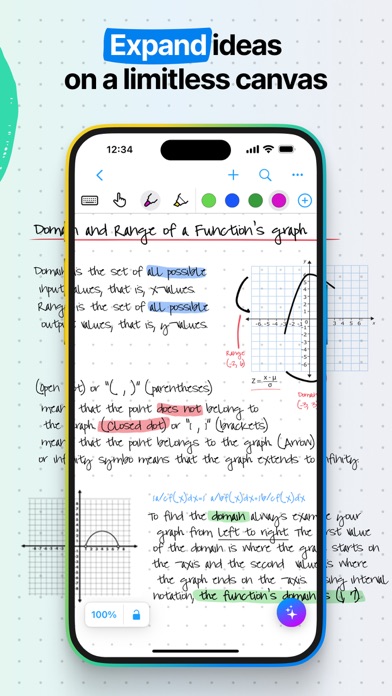 Expand ideas
on a limitless canvas
12:34
Domain and Range of a Function's graph
Domain is the set of all possible
input values, that is, x-values.
Range is the set of all possible
output values, that is, y-values.
Range
Z = x - μ / σ
(Open dot) or "( , )" (parentheses)
mean that the point does not belong to
the graph. (Closed dot) or "[ , ]" (brackets)
mean that the point belongs to the graph (Arrow)
or infinity symbo means that the graph extends to infinity.
To find the domain always examine your
graph from Left to right The first value
of the domain is where the graph starts on
the axis and the second value is where
the graph ends on the axis using interval
notation, the function's domain is
100%